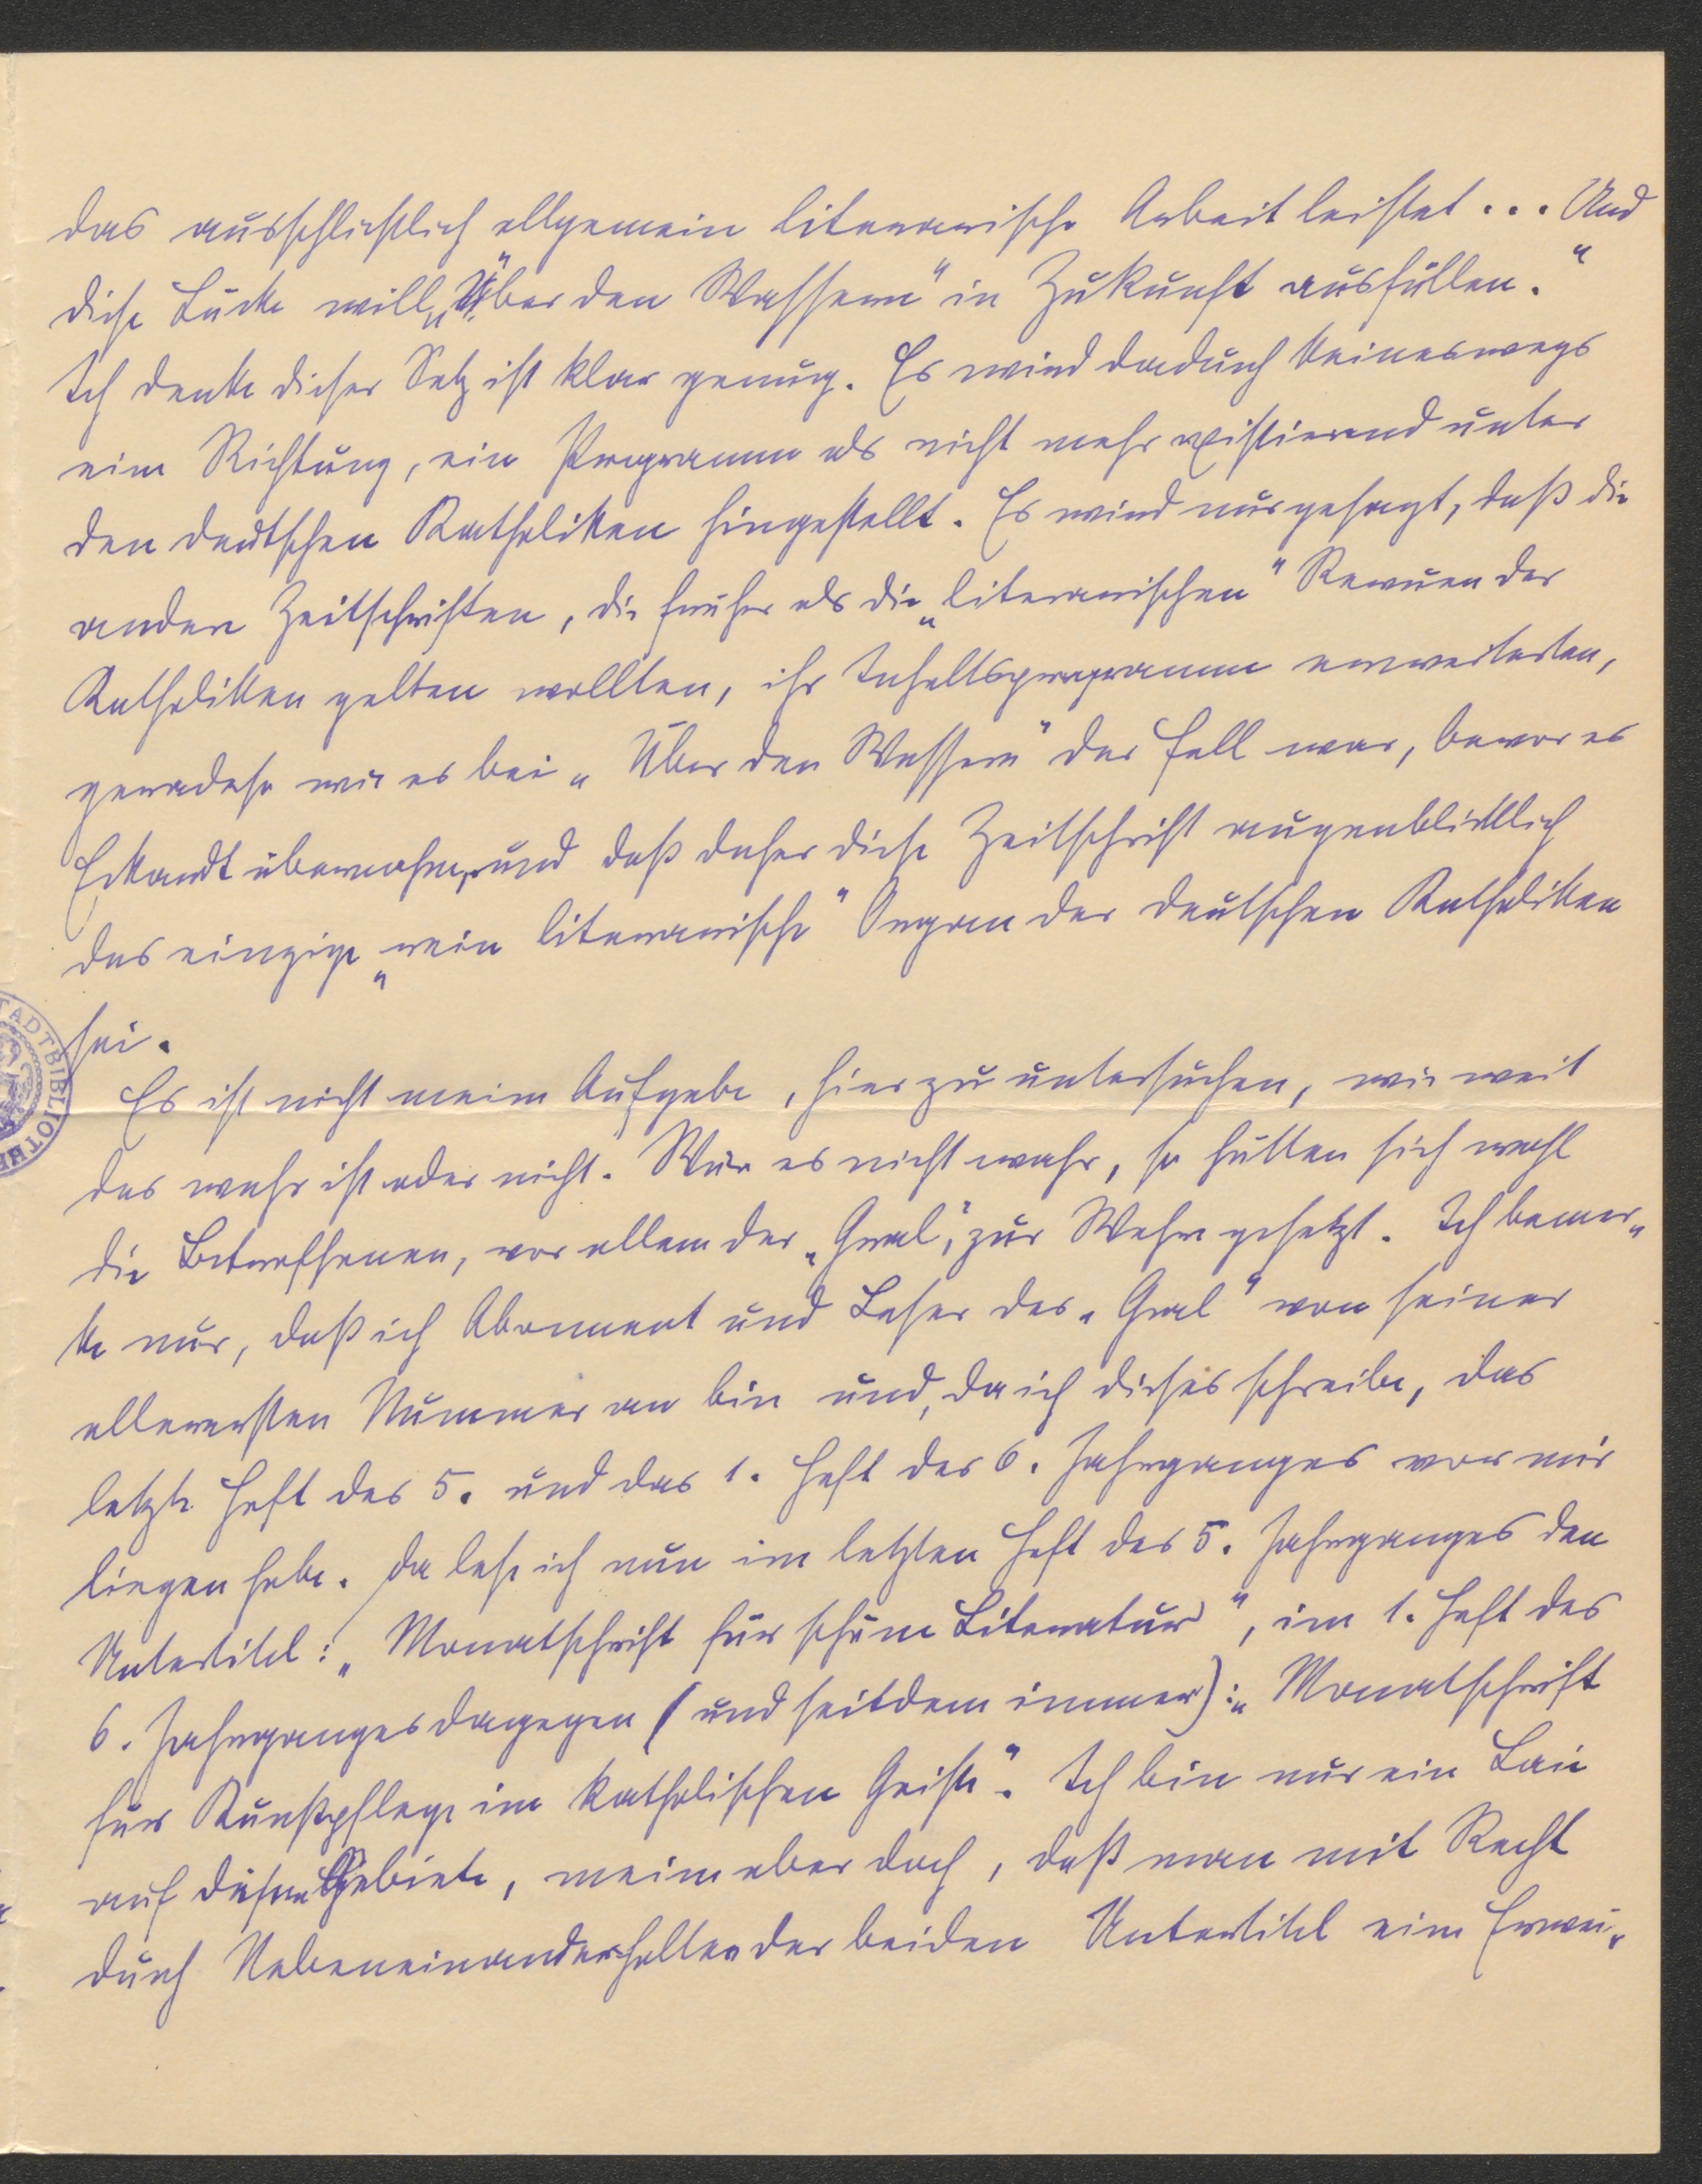 das ausschließlich allgemein literarische Arbeit leistet ... Und
diese Lücke will „Über den Wassern" in Zukunft ausfüllen."
Ich denke dieser Satz ist klar genug. Es wird dadurch keineswegs
eine Richtung, ein Programm als nicht mehr existierend unter
den deutschen Katholiken hingestellt. Es wird nur gesagt, daß die
andern Zeitschriften, die früher als die „literarischen" Revuen der
Katholiken gelten wollten, ihr Inhaltsprogramm erweiterten,
geradeso wie es bei „Über den Wassern" der Fall war, bevor es
Eckardt übernahm, und daß daher diese Zeitschrift augenblicklich
das einzige „rein literarische" Organ der deutschen Katholiken
sei.
Es ist nicht meine Aufgabe, hier zu untersuchen, wie weit
das wahr ist oder nicht. Wär es nicht wahr, so hätten sich wohl
die Betroffenen, vor allem der „Gral", zur Wehre gesetzt. Ich bemer„
ke nur, daß ich Abonnent und Leser des „Gral" von seiner
allerersten Nummer an bin und, da ich dieses schreibe, das
letzte Heft des 5. und das 1. Heft des 6. Jahrganges vor mir
liegen habe. Da lese ich nun im letzten Heft des 5. Jahrganges den
Untertitel: „Monatschrift für schöne Literatur", im 1. Heft des
6. Jahrganges dagegen (und seitdem immer): „Monatschrift
für Kunstpflege im katholischen Geiste". Ich bin nur ein Laie
auf diesem Gebiete, meine aber doch, daß man mit Recht
durch Nebeneinanderhalten der beiden Untertitel eine Erwei„
STADTBIBLIOTHEK